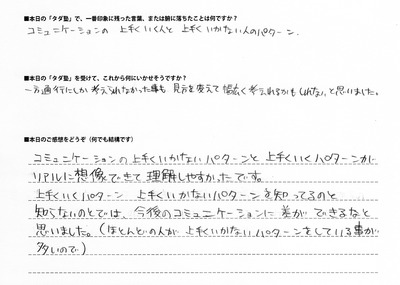 ■本日の「タダ塾」で、一番印象に残った言葉、または腑に落ちたことは何ですか?
コミュニケーションの上手くいく人と上手くいかない人のパターン.
■本日の「タダ塾」を受けて、これから何にいかせそうですか?
一方通行にしか考えられなかった事も 見方を変えて幅広く考えられるかもしれない、と思いました。
■本日のご感想をどうぞ(何でも結構です)
コミュニケーションの上手くいかないパターンと上手くいくパターンが
リアルに想像できて理解しやすかったです。
上手くいくパターン 上手くいかないパターンを知ってるのと
知らないのとでは、今後のコミュニケーションに差ができるなと
思いました。(ほとんどの人が上手くいかないパターンをしている事が
多いので)